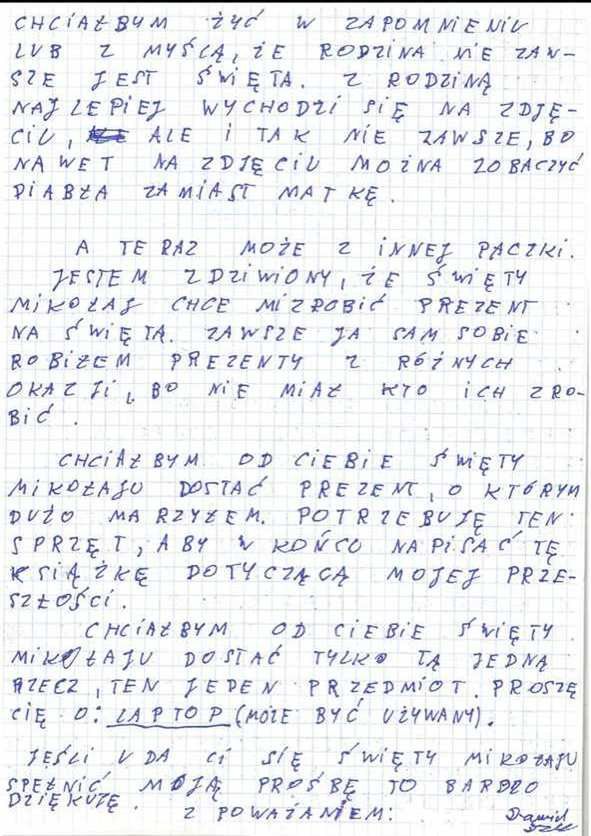 CHCIAŁBYM ŻYĆ W ZAPOMNIENIU
LUB Z MYŚLĄ, ŻE RODZINA NIE ZAW-
SZE JEST ŚWIĘTA. Z RODZINĄ
NAJLEPIEJ WYCHODZI SIĘ NA ZDJĘ-
CIU, ALE I TAK NIE ZAWSZE, BO
NAWET NA ZDJĘCIU MOŻNA ZOBACZYĆ
DIABŁA ZAMIAST MATKĘ.
A TERAZ MOŻE Z INNEJ PACZKI.
JESTEM ZDZIWIONY, ŻE ŚWIĘTY
MIKOŁAJ CHCE MI ZROBIĆ PREZENT
NA ŚWIĘTA. ZAWSZE JA SAM SOBIE
ROBIŁEM PREZENTY Z RÓŻNYCH
OKAZJI, BO NIE MIAŁ KTO ICH ZRO-
BIĆ.
CHCIAŁBYM OD CIEBIE ŚWIĘTY
MIKOŁAJU DOSTAĆ PREZENT, O KTÓRYM
DUŻO MARZYŁEM. POTRZEBUJĘ TEN
SPRZĘT, ABY W KOŃCU NAPISAĆ TĘ
KSIĄŻKĘ DOTYCZĄCĄ MOJEJ PRZE-
SZŁOŚCI.
CHCIAŁBYM OD CIEBIE ŚWIĘTY
MIKOŁAJU DOSTAĆ TYLKO TĄ JEDNĄ
RZECZ, TEN JEDEN PRZEDMIOT. PROSZĘ
CIĘ O: LAPTOP (MOŻE BYĆ UŻYWANY).
JEŚLI UDA CI SIĘ ŚWIĘTY MIKOŁAJU
SPEŁNIĆ MOJĄ PROŚBĘ TO BARDZO
DZIĘKUJĘ.
Z POWAŻANIEM: Dawid